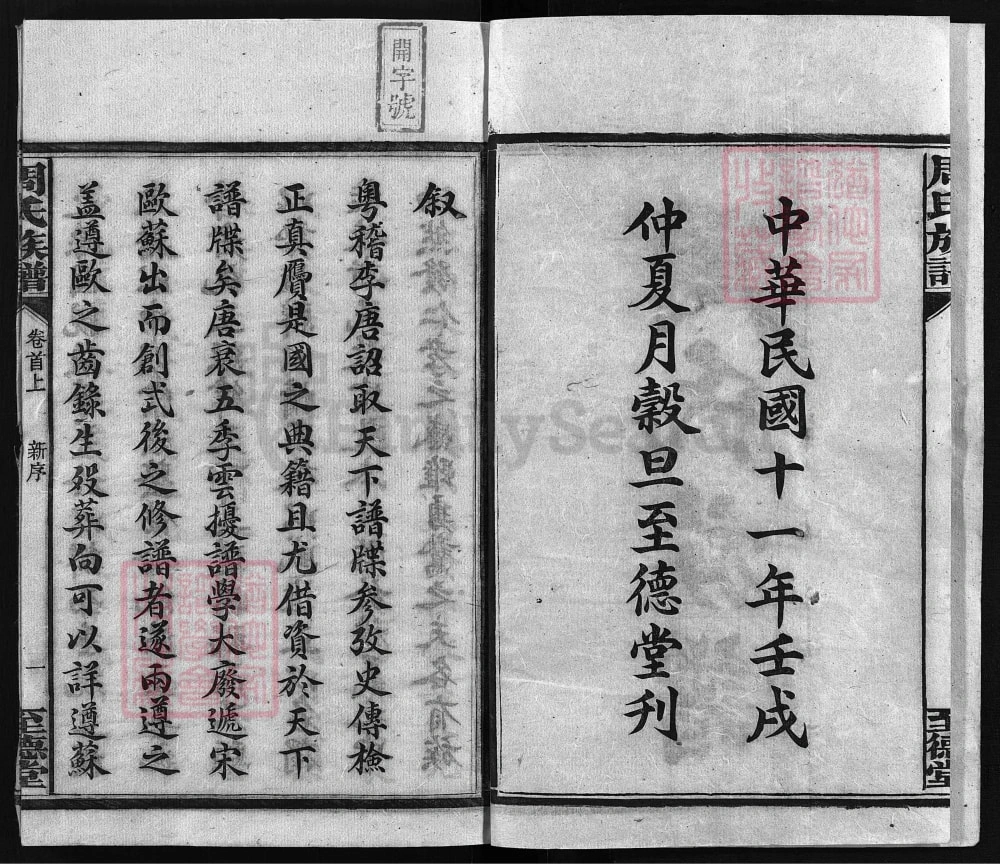 周氏族譜
至德堂
中華民國十一年壬戌
仲夏月穀旦至德堂刋
開字號
叙
粤稽李唐詔取天下譜牒参攷史傳檢
正真贗是國之典籍且尤借資於天下
譜牒矣唐衰五季雲擾譜學大廢遞宋
歐蘇出而創式後之修譜者遂兩遵之
盖遵歐之齒錄生歿葬向可以詳遵蘇
周氏族譜
卷首上
新序
一
至德堂